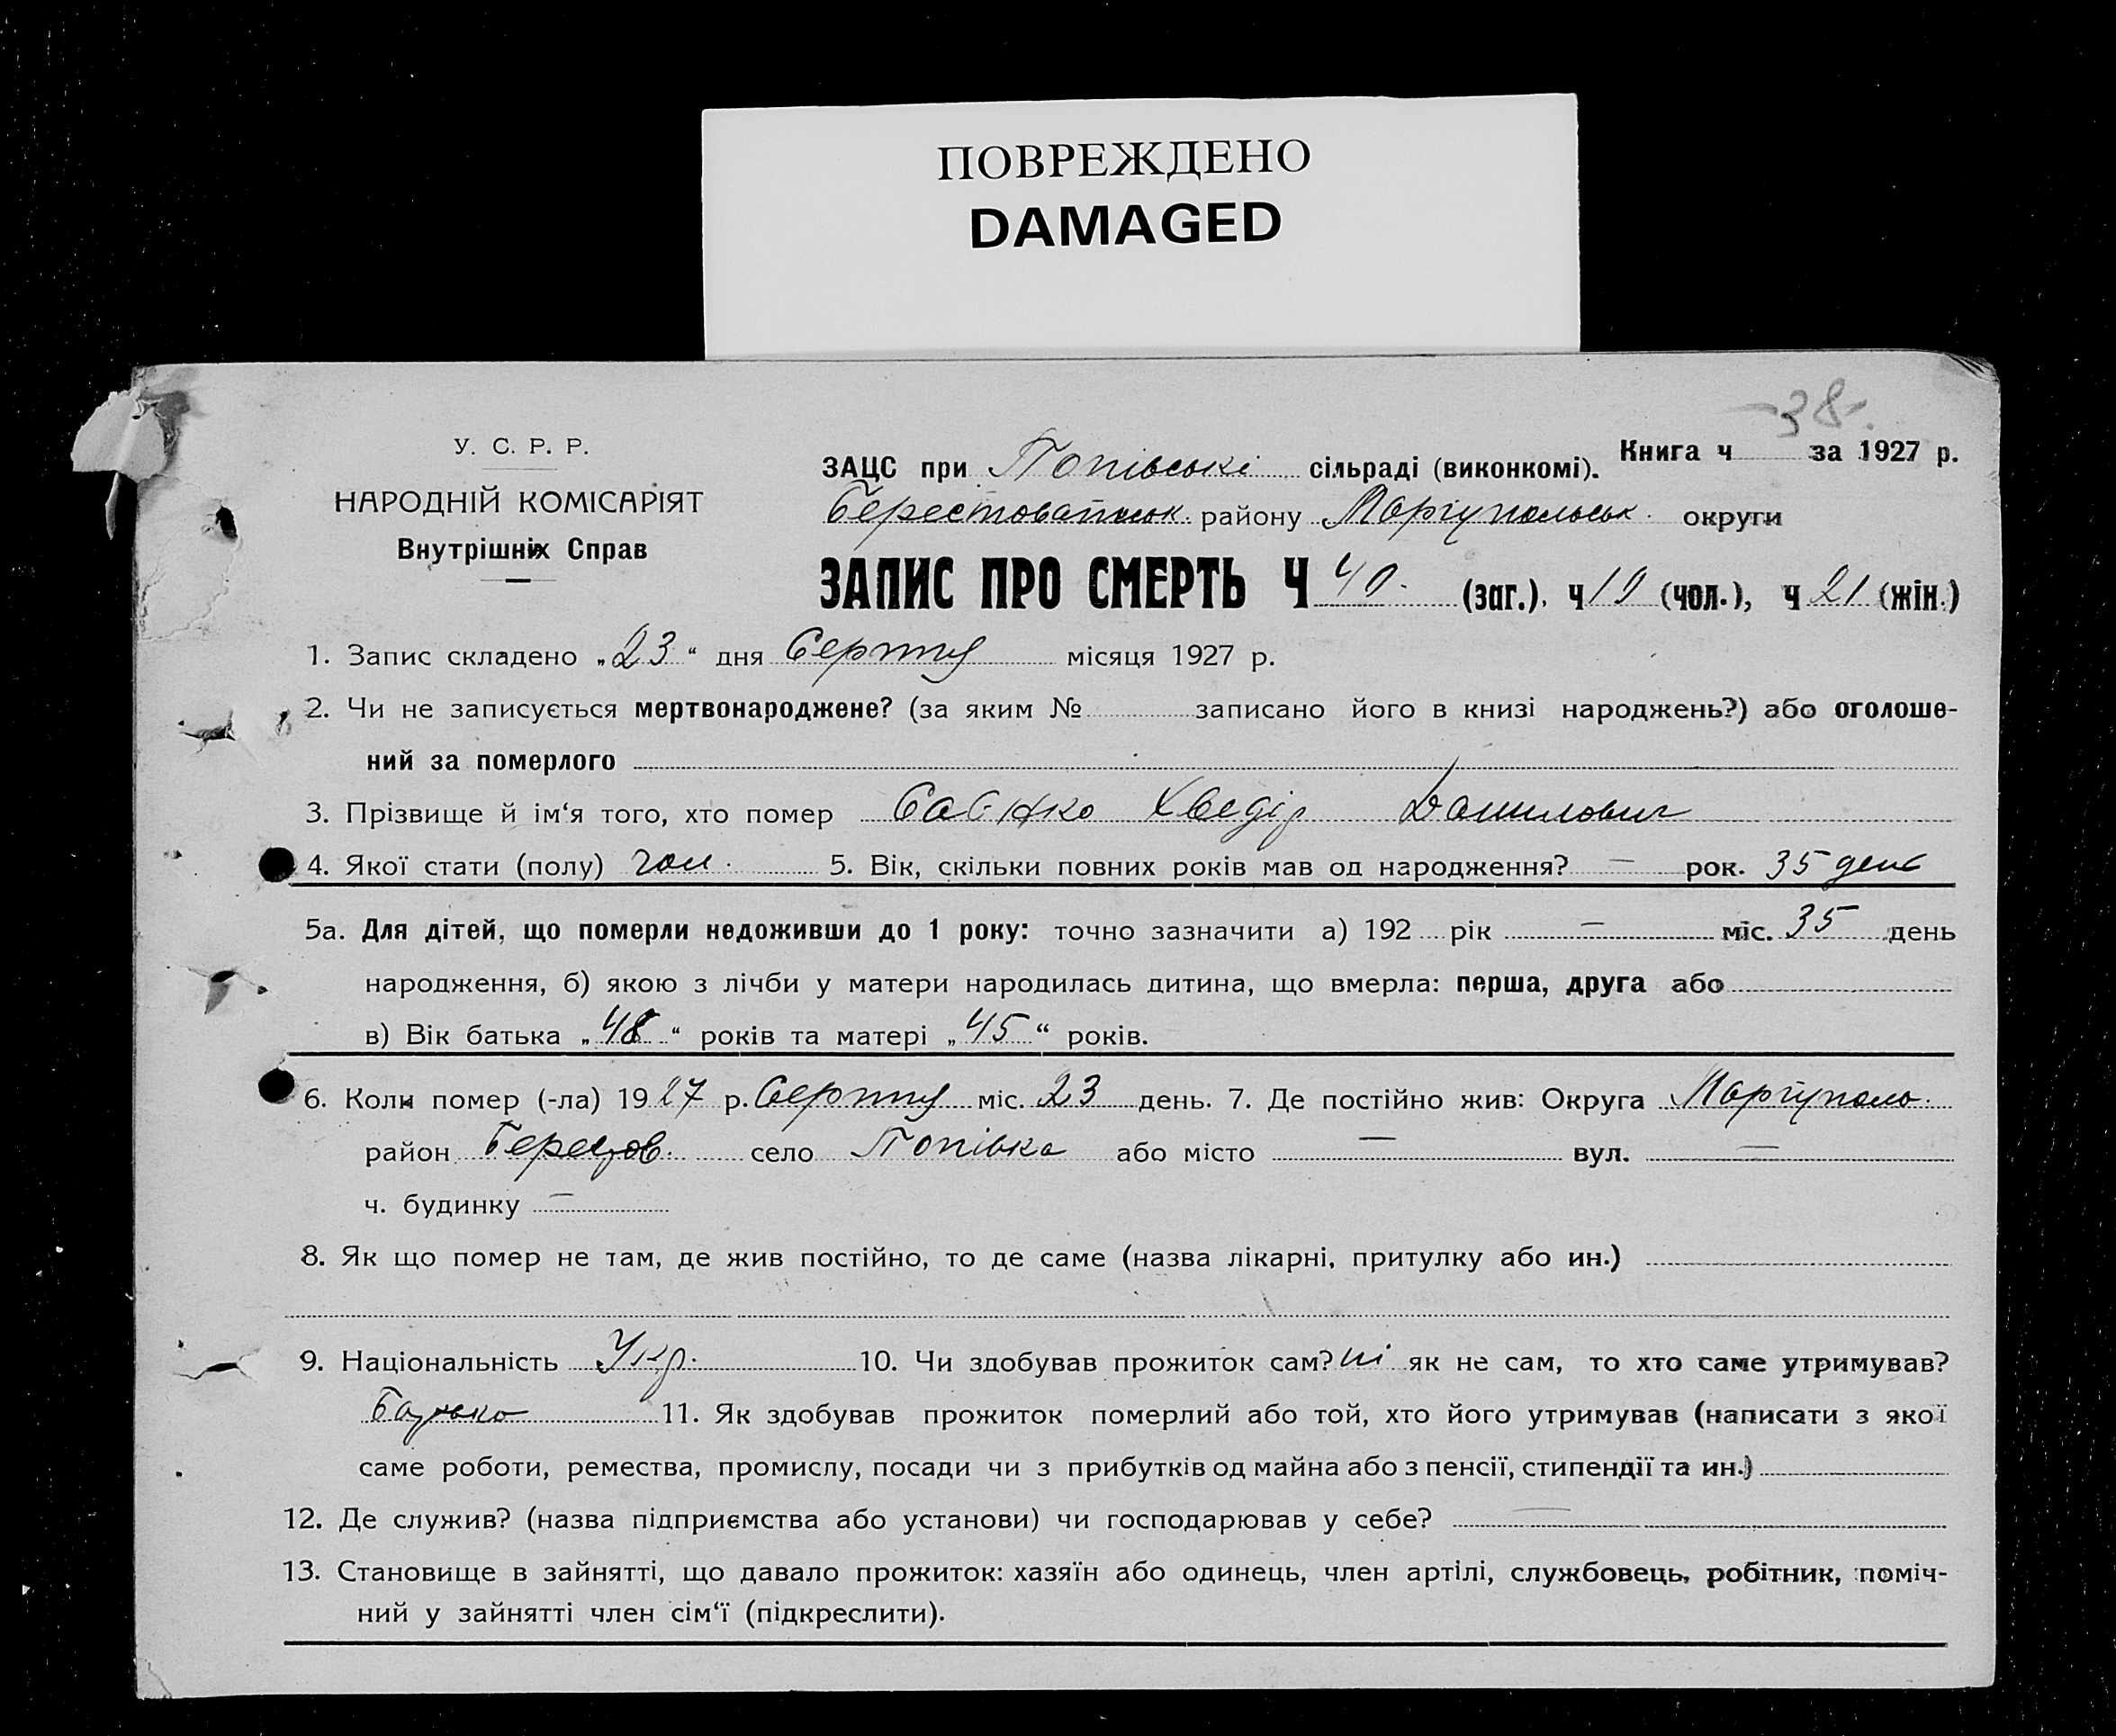 ПОВРЕЖДЕНО
DAMAGED
-38-
У. С. Р. Р.
НАРОДНІЙ КОМІСАРІЯТ
Внутрішніх Справ
Книга ч за 1927 р.
ЗАЦС при Попівські сільраді (виконкомі).
району Маріупольськ. округи
ЗАПИС ПРО СМЕРТЬ Ч 40. (заг.), ч 19 (чол.), ч 21 (жін.)
1. Запис складено „23“ дня Серпня місяця 1927 р.
2. Чи не записується мертвонароджене? (за яким № записано його в книзі народжень?) або оголоше-
ний за померлого
3. Прізвище й ім‘я того, хто помер Хведір Данилович
4. Якої стати (полу) чол. 5. Вік, скільки повних років мав од народження? — рок. 35 день
5а. Для дітей, що померли недоживши до 1 року: точно зазначити а) 192 рік — міс. 35 день
народження, б) якою з лічби у матери народилась дитина, що вмерла: перша, друга або
в) Вік батька „48“ років та матері „45“ років.
6. Коли помер (-ла) 1927 р. Серпня міс. 23 день. 7. Де постійно жив: Округа Маріуполь.
район Берестов. село Попівка або місто — вул. —
ч. будинку —
8. Як що помер не там, де жив постійно, то де саме (назва лікарні, притулку або ин.)
9. Національність Укр. 10. Чи здобував прожиток сам? ні як не сам, то хто саме утримував?
Батько 11. Як здобував прожиток померлий або той, хто його утримував (написати з якої
саме роботи, ремества, промислу, посади чи з прибутків од майна або з пенсії, стипендії та ин.)
12. Де служив? (назва підприємства або установи) чи господарював у себе? —
13. Становище в зайнятті, що давало прожиток: хазяїн або одинець, член артілі, службовець, робітник, поміч-
ний у зайнятті член сім‘ї (підкреслити).